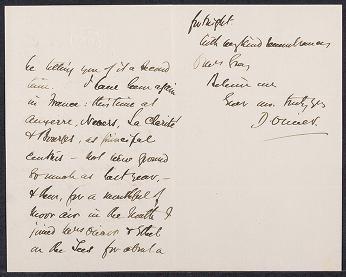 be telling you of it a second
time. I have been again
in France: this time at
Auxerre, Nevers, La Charité
& Bourges, as principal
centres – not new ground
so much as last year, –
& then, for a mouthful of
moor air in the North I
joined Mrs & Ethel
on the Tees for about a
fortnight
With my kind remembrances
to Mrs Gray
Believe me
Ever yrs. truly